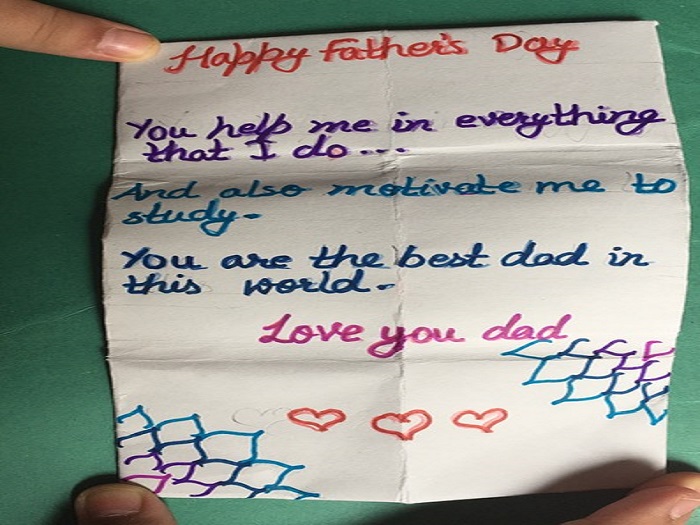 Happy Father's Day
You help me in everything
that I do...
And also motivate me to
study.
You are the best dad in
this world.
Love you dad